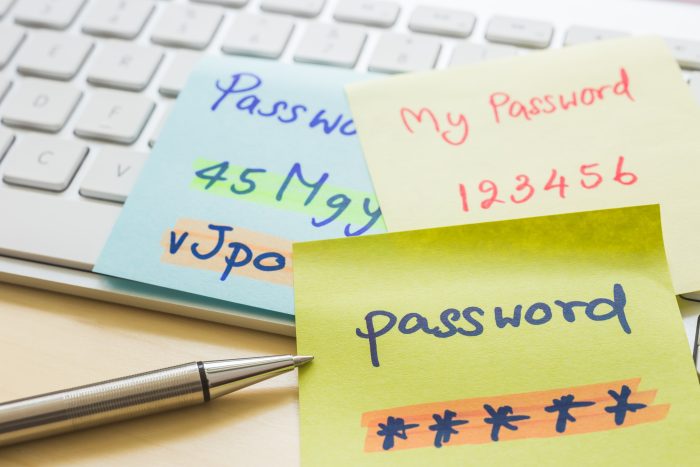 D F
C V
Passwo
45 Mgy
vJpo
My Password
123456
password
*****